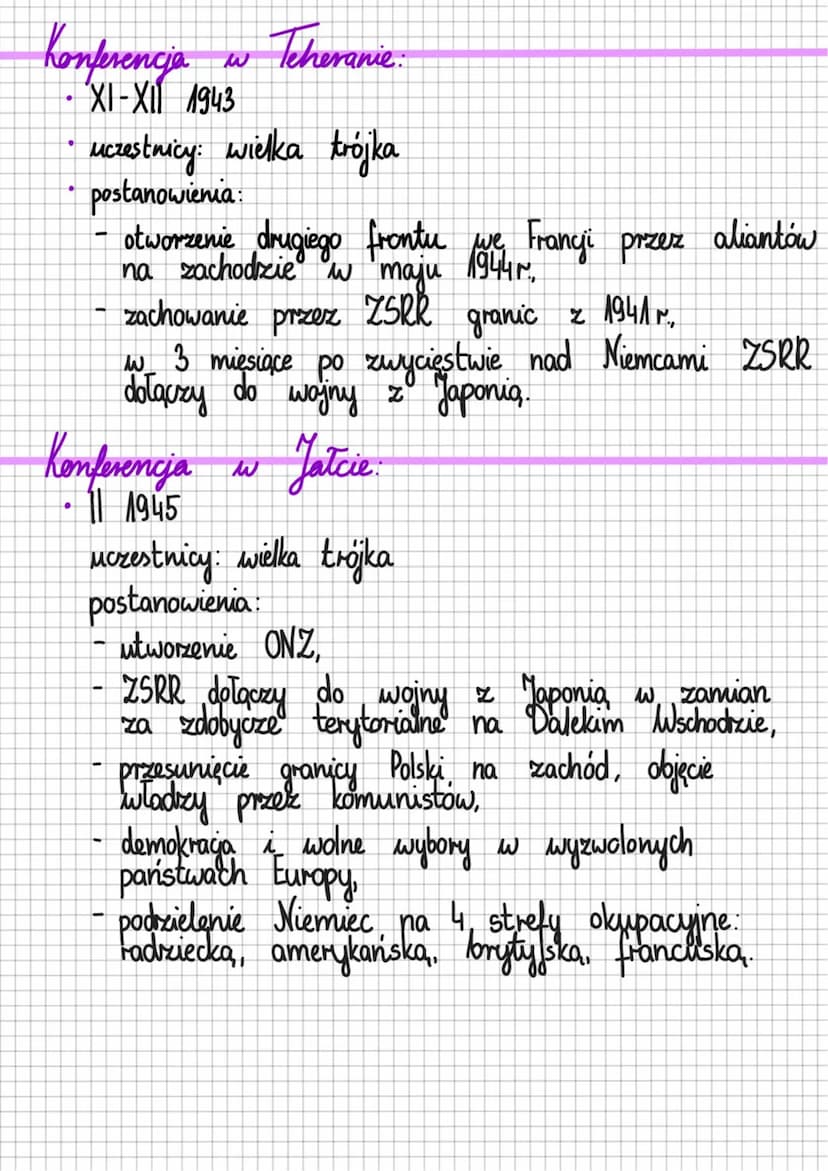 Konferencja w Teheranie:
• XI-XII 1943
• uczestnicy: wielka trójka
• postanowienia:
- otworzenie drugiego frontu we Francji przez aliantów
na zachodzie w maju 1944 r.,
- zachowanie przez ZSRR granic z 1941 r.,
w 3 miesiące po zwycięstwie nad Niemcami ZSRR
dołączy do wojny z Japonią.
Konferencja w Jałcie:
• II 1945
uczestnicy: wielka trójka
postanowienia:
- utworzenie ONZ,
- ZSRR dołączy do wojny z Japonią w zamian
za zdobycze terytorialne na Dalekim Wschodzie,
- przesunięcie granicy Polski na zachód, objęcie
władzy przez komunistów,
- demokracja i wolne wybory w wyzwolonych
państwach Europy,
- podzielenie Niemiec na 4 strefy okupacyjne:
radziecką, amerykańską, brytyjską, francuską.